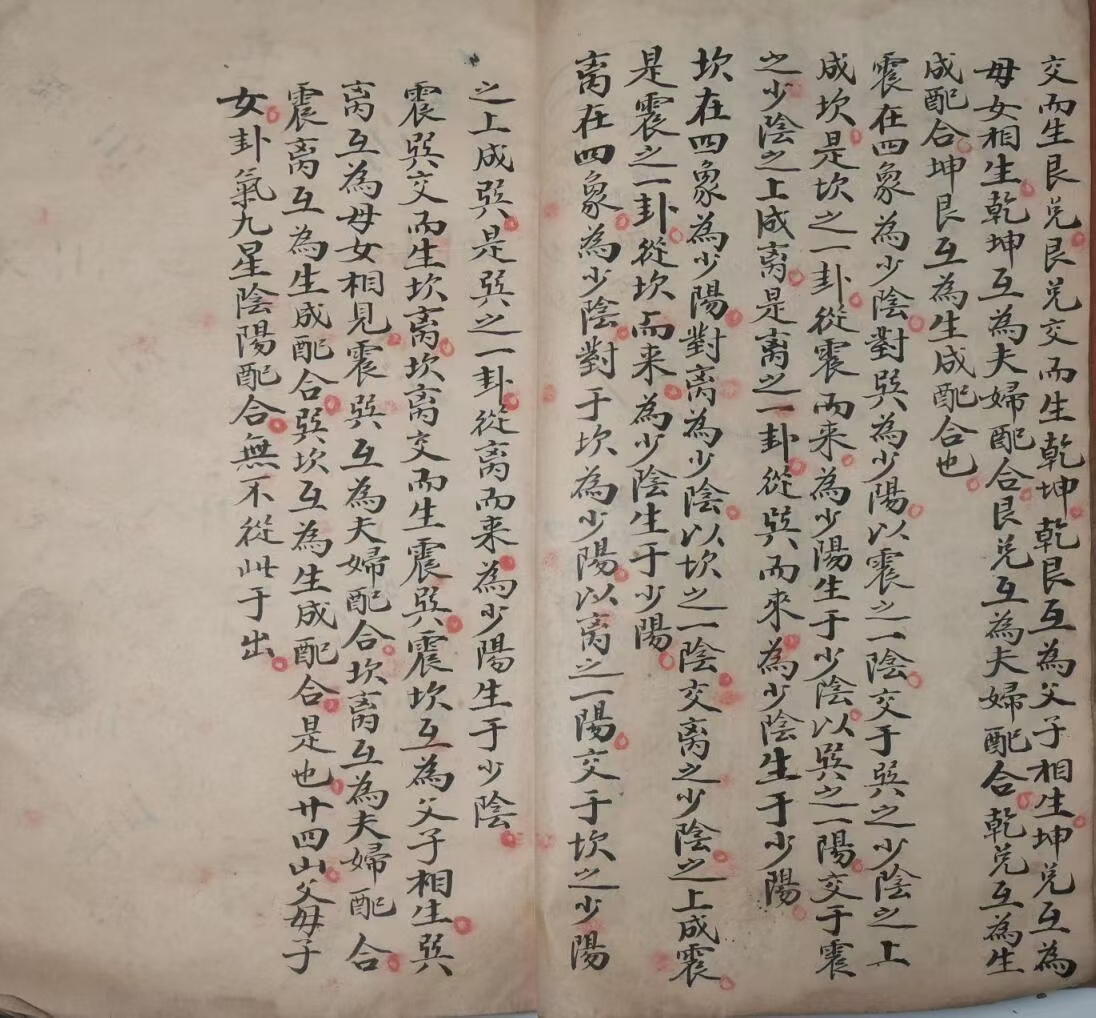 交而生艮兑艮兑交而生乾坤乾艮互為父子相生坤兑互為
母女相生乾坤互為夫婦配合艮兑互為夫婦配合乾兑互為生
成配合坤艮互為生成配合也
震在四象為少陰對巽為少陽以震之一陰交于巽之少陰之上
成坎是坎之一卦從震而来為少陽生于少陰以巽之一陽交于震
之少陰之上成离是离之一卦從巽而来為少陰生于少陽
坎在四象為少陽對离為少陰以坎之一陰交离之少陰之上成震
是震之一卦從坎而来為少陰生于少陽
离在四象為少陰對于坎為少陽以离之一陽交于坎之少陽
之上成巽是巽之一卦從离而来為少陽生于少陰
震巽交而生坎离坎离交而生震巽震坎互為父子相生巽
离互為母女相見震巽互為夫婦配合坎离互為夫婦配合
震离互為生成配合巽坎互為生成配合是也廿四山父母子
女卦氣九星陰陽配合無不從此于出